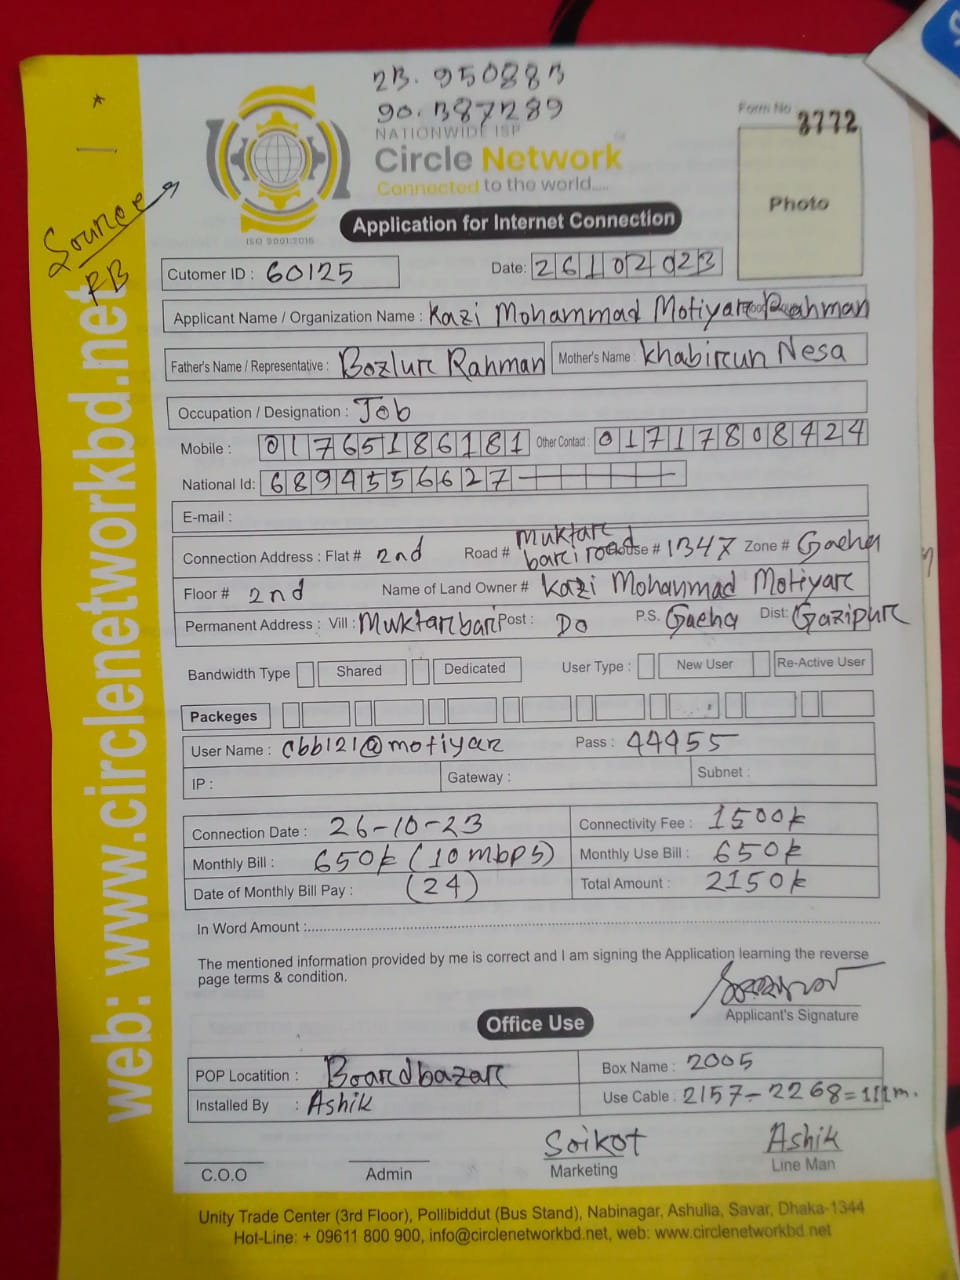 23.950883
90.387289
NATIONWIDE ISP
Circle Network
Connected to the world.....
ISO 9001:2015
Form No 3772
Photo
Source
RB
Application for Internet Connection
Cutomer ID : 60125
Date: 26102023
Applicant Name / Organization Name : Kazi Mohammad Motiyar Rahman
Father's Name / Representative : Bozlur Rahman Mother's Name : Khabirun Nesa
Occupation / Designation : Job
Mobile : 01765186181 Other Contact : 01717808424
National Id: 6894556627
E-mail :
Connection Address : Flat # 2nd Road # Muktar bari road House # 1347 Zone # Gacha
Floor # 2nd Name of Land Owner # Kazi Mohammad Motiyar
Permanent Address : Vill : Muktarbari Post : Do P.S. Gacha Dist: Gazipur
Bandwidth Type Shared Dedicated User Type : New User Re-Active User
Packeges
User Name : cbb121@motiyar Pass : 44955
IP : Gateway : Subnet :
Connection Date : 26-10-23 Connectivity Fee : 1500k
Monthly Bill : 650k (10mbps) Monthly Use Bill : 650k
Date of Monthly Bill Pay : (24) Total Amount : 2150k
In Word Amount :
The mentioned information provided by me is correct and I am signing the Application learning the reverse
page terms & condition.
Applicant's Signature
Office Use
POP Locatition : Boardbazar Box Name : 2005
Installed By : Ashik Use Cable : 2157-2268=111m.
Soikot Ashik
C.O.O Admin Marketing Line Man
Unity Trade Center (3rd Floor), Pollibiddut (Bus Stand), Nabinagar, Ashulia, Savar, Dhaka-1344
Hot-Line: + 09611 800 900, info@circlenetworkbd.net, web: www.circlenetworkbd.net
web: www.circlenetworkbd.net